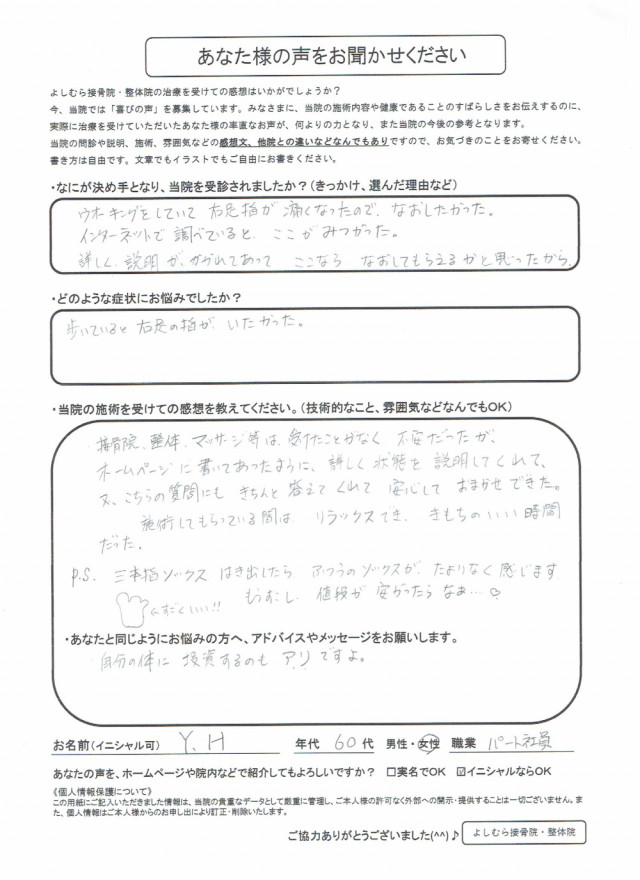 あなた様の声をお聞かせください
よしむら接骨院・整体院の治療を受けての感想はいかがでしょうか?
今、当院では「喜びの声」を募集しています。みなさまに、当院の施術内容や健康であることのすばらしさをお伝えするのに、
実際に治療を受けていただいたあなた様の率直なお声が、何よりの力となり、また当院の今後の参考となります。
当院の問診や説明、施術、雰囲気などの感想文、他院との違いなどなんでもありですので、お気づきのことをお寄せください。
書き方は自由です。文章でもイラストでもご自由にお書きください。
・なにが決め手となり、当院を受診されましたか?(きっかけ、選んだ理由など)
ウオーキングをしていて 右足指が 痛くなったので、なおしたかった。
インターネットで 調べていると、ここが みつかった。
詳しく 説明が、かかれてあって ここなら なおしてもらえるかと思ったから、
・どのような症状にお悩みでしたか?
歩いていると 右足の指が、いたかった。
・当院の施術を受けての感想を教えてください。(技術的なこと、雰囲気などなんでもOK)
接骨院、整体、マッサージ等は、受けたことがなく 不安だったが、
ホームページに書いてあったように、詳しく 状態を 説明してくれて、
又、こちらの質問にも きちんと 答えて くれて 安心して おまかせ できた。
施術してもらっている間は リラックスでき、きもちのいい 時間
だった。
P.S. 三本指ソックス はき出したら ふつうのソックスが、たよりなく 感じます
もうすこし 値段が 安かったら なぁ…♡
すごくいい!!
・あなたと同じようにお悩みの方へ、アドバイスやメッセージをお願いします。
自分の体に 投資するのも アリですよ。
お名前(イニシャル可) Y. H 年代 60代 男性・女性 職業 パート社員
あなたの声を、ホームページや院内などで紹介してもよろしいですか? □実名でOK ☑イニシャルならOK
《個人情報保護について》
この用紙にご記入いただきました情報は、当院の貴重なデータとして厳重に管理し、ご本人様の許可なく外部への開示・提供することは一切ございません。ま
た、個人情報はご本人様からのお申し出により訂正・削除いたします。
ご協力ありがとうございました(^^)♪ よしむら接骨院・整体院